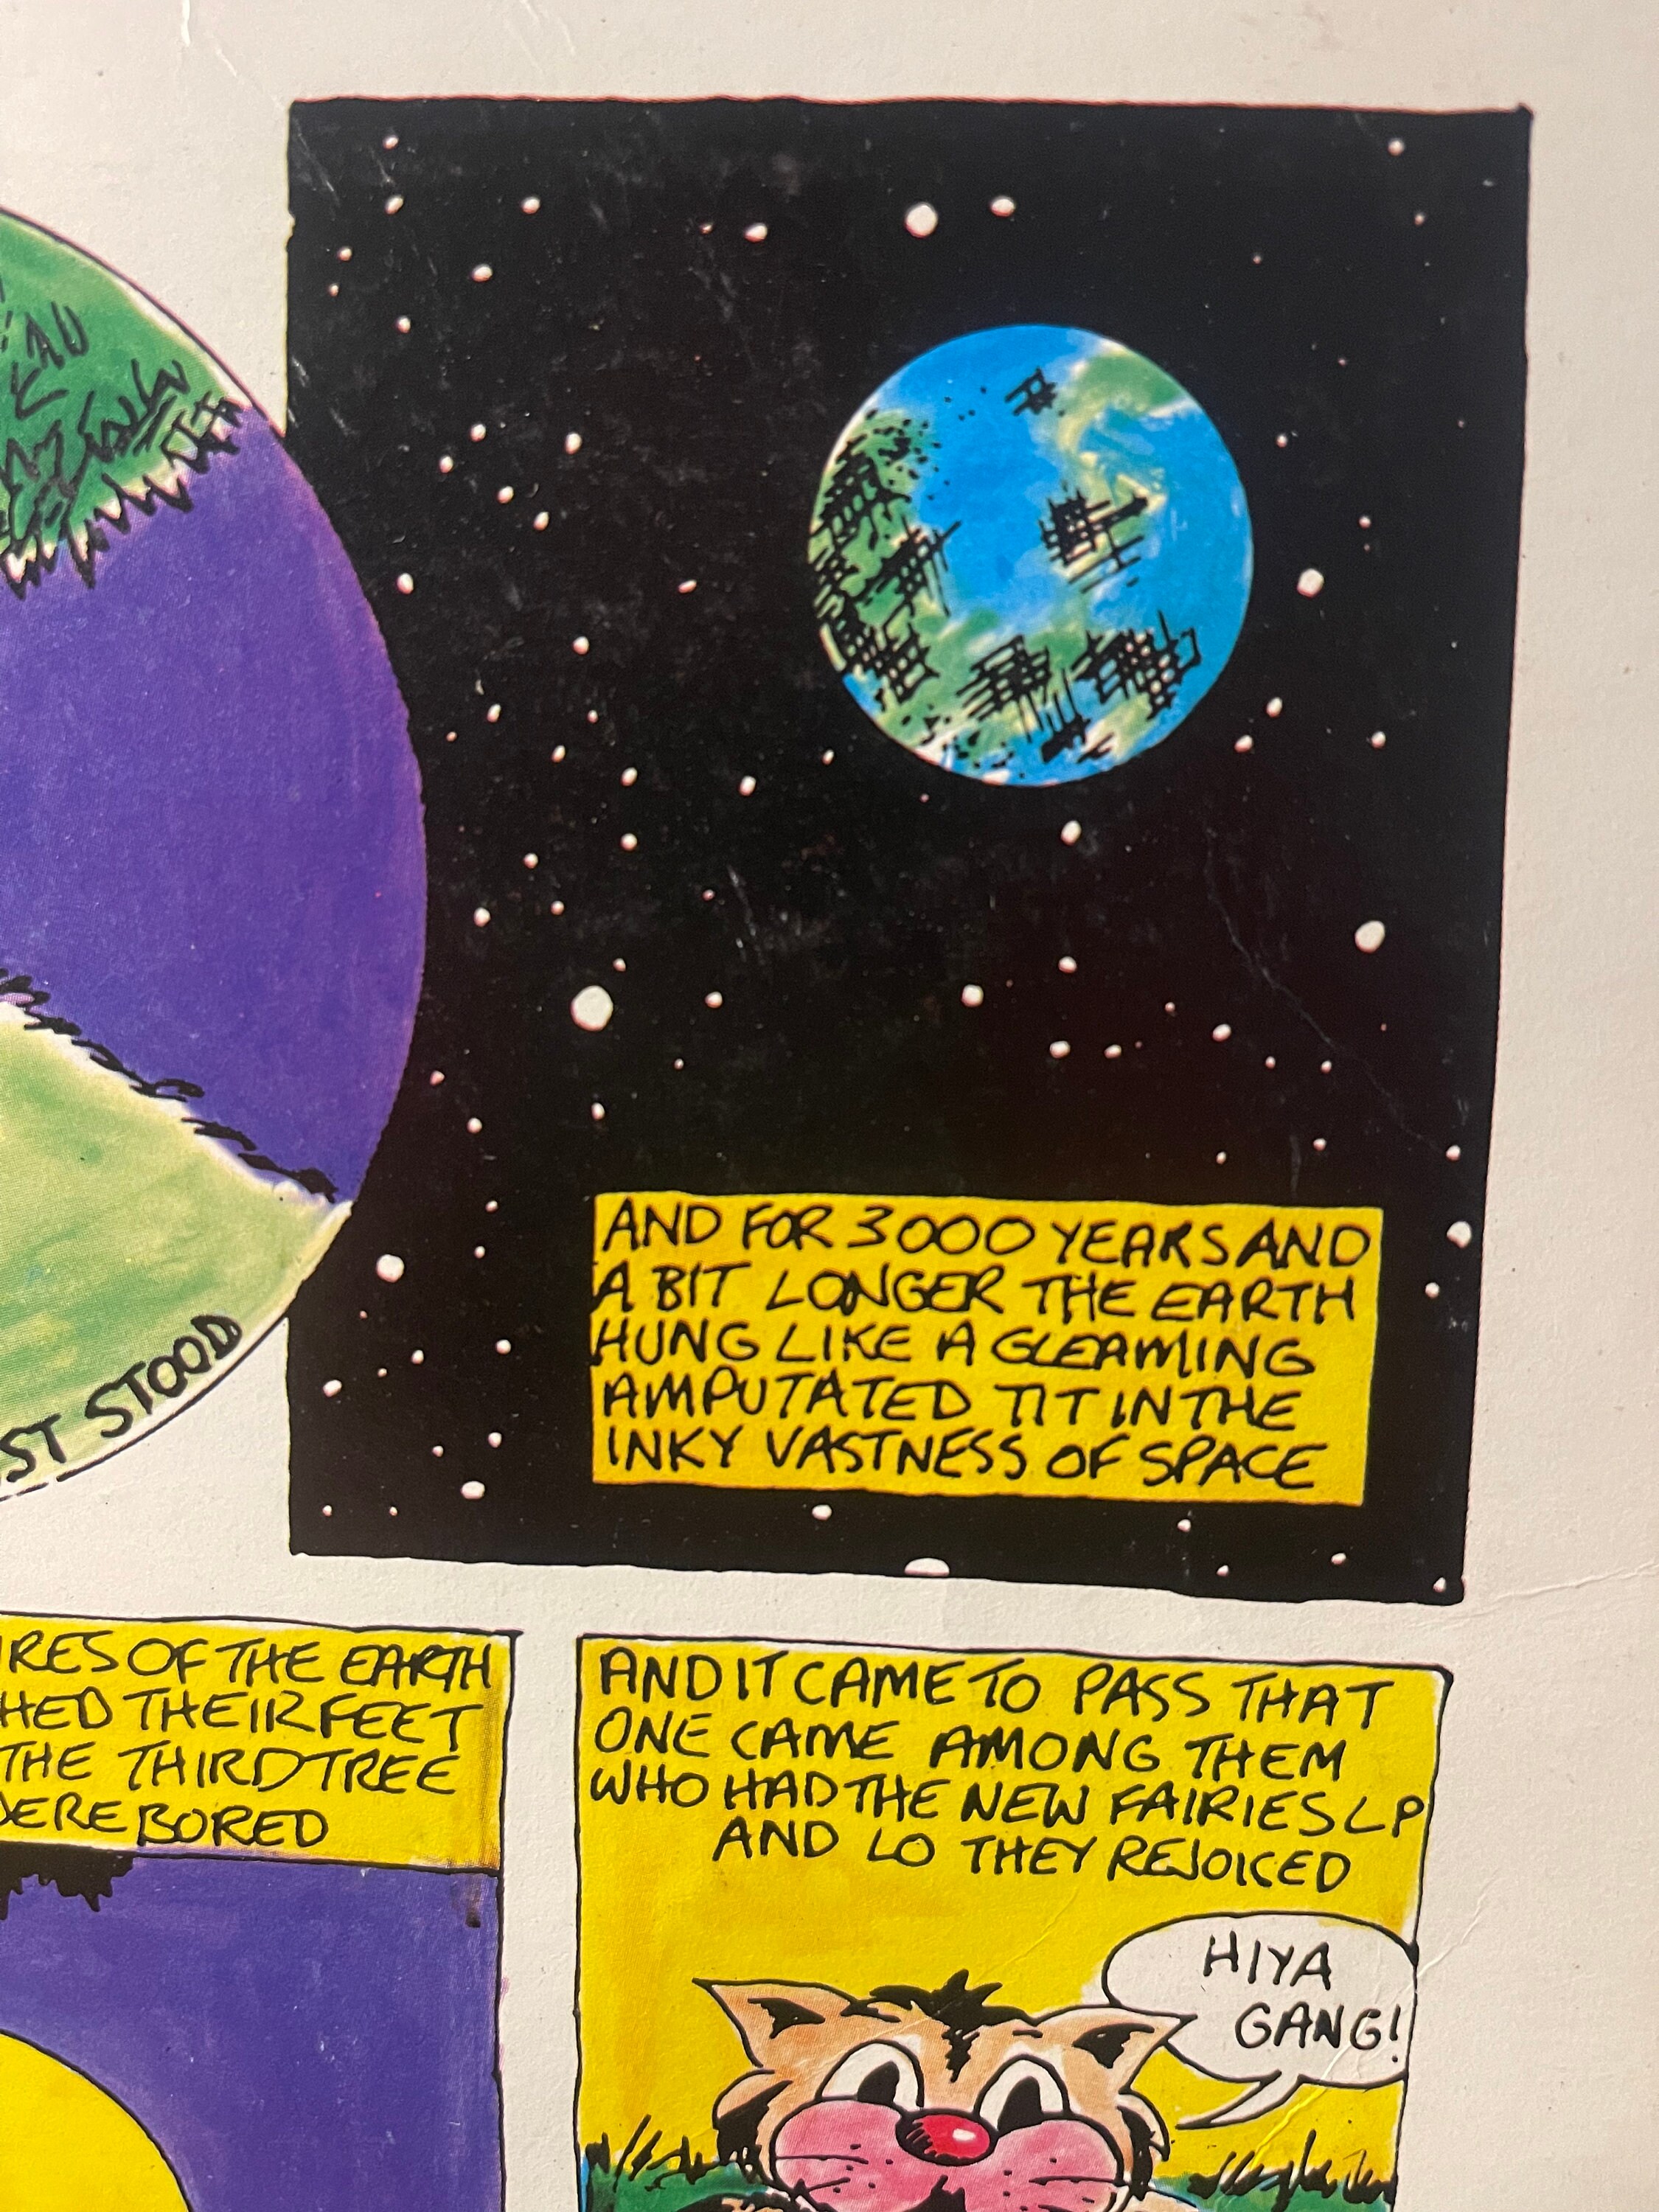 ST STOOD
AND FOR 3000 YEARS AND
A BIT LONGER THE EARTH
HUNG LIKE A GLEAMING
AMPUTATED TIT IN THE
INKY VASTNESS OF SPACE
IRES OF THE EARTH
HED THEIR FEET
THE THIRD TREE
WERE BORED
AND IT CAME TO PASS THAT
ONE CAME AMONG THEM
WHO HAD THE NEW FAIRIES LP
AND LO THEY REJOICED
HIYA
GANG!